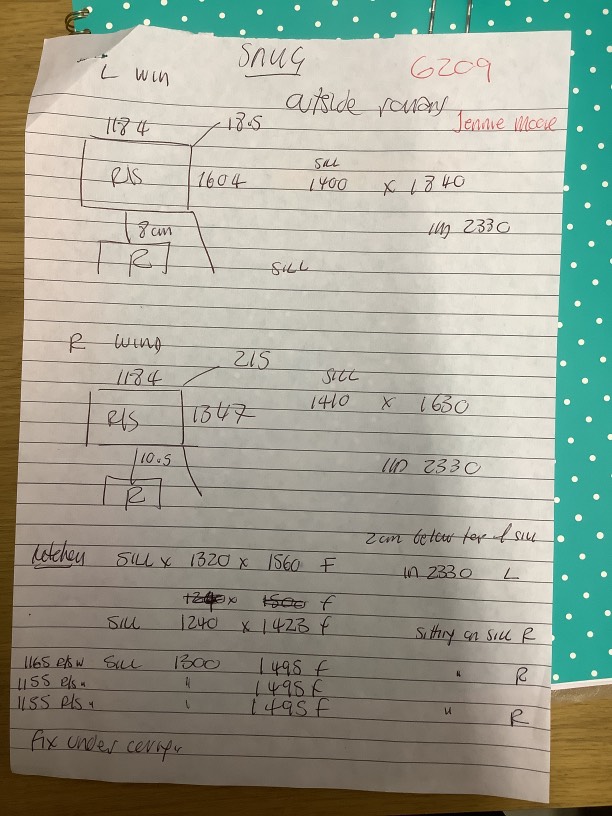 SNUG
L WIN
6209
outside
Jennie Moore
1184
18.5
R/S
1604
SILL
1400 x 1840
8cm
IN 2330
R
SILL
R WIND
215
1184
SILL
R/S
1347
1410 x 1630
10.5
IN 2330
R
2cm below top of sill
Kitchen SILL x 1320 x 1560 F IN 2330 L
1240 x 1500 f
SILL 1240 x 1423 f Sitting on SILL R
1165 R/S W SILL 1300 1495 f " R
1155 R/S " " 1495 f
1155 R/S " " 1495 f " R
Fix under